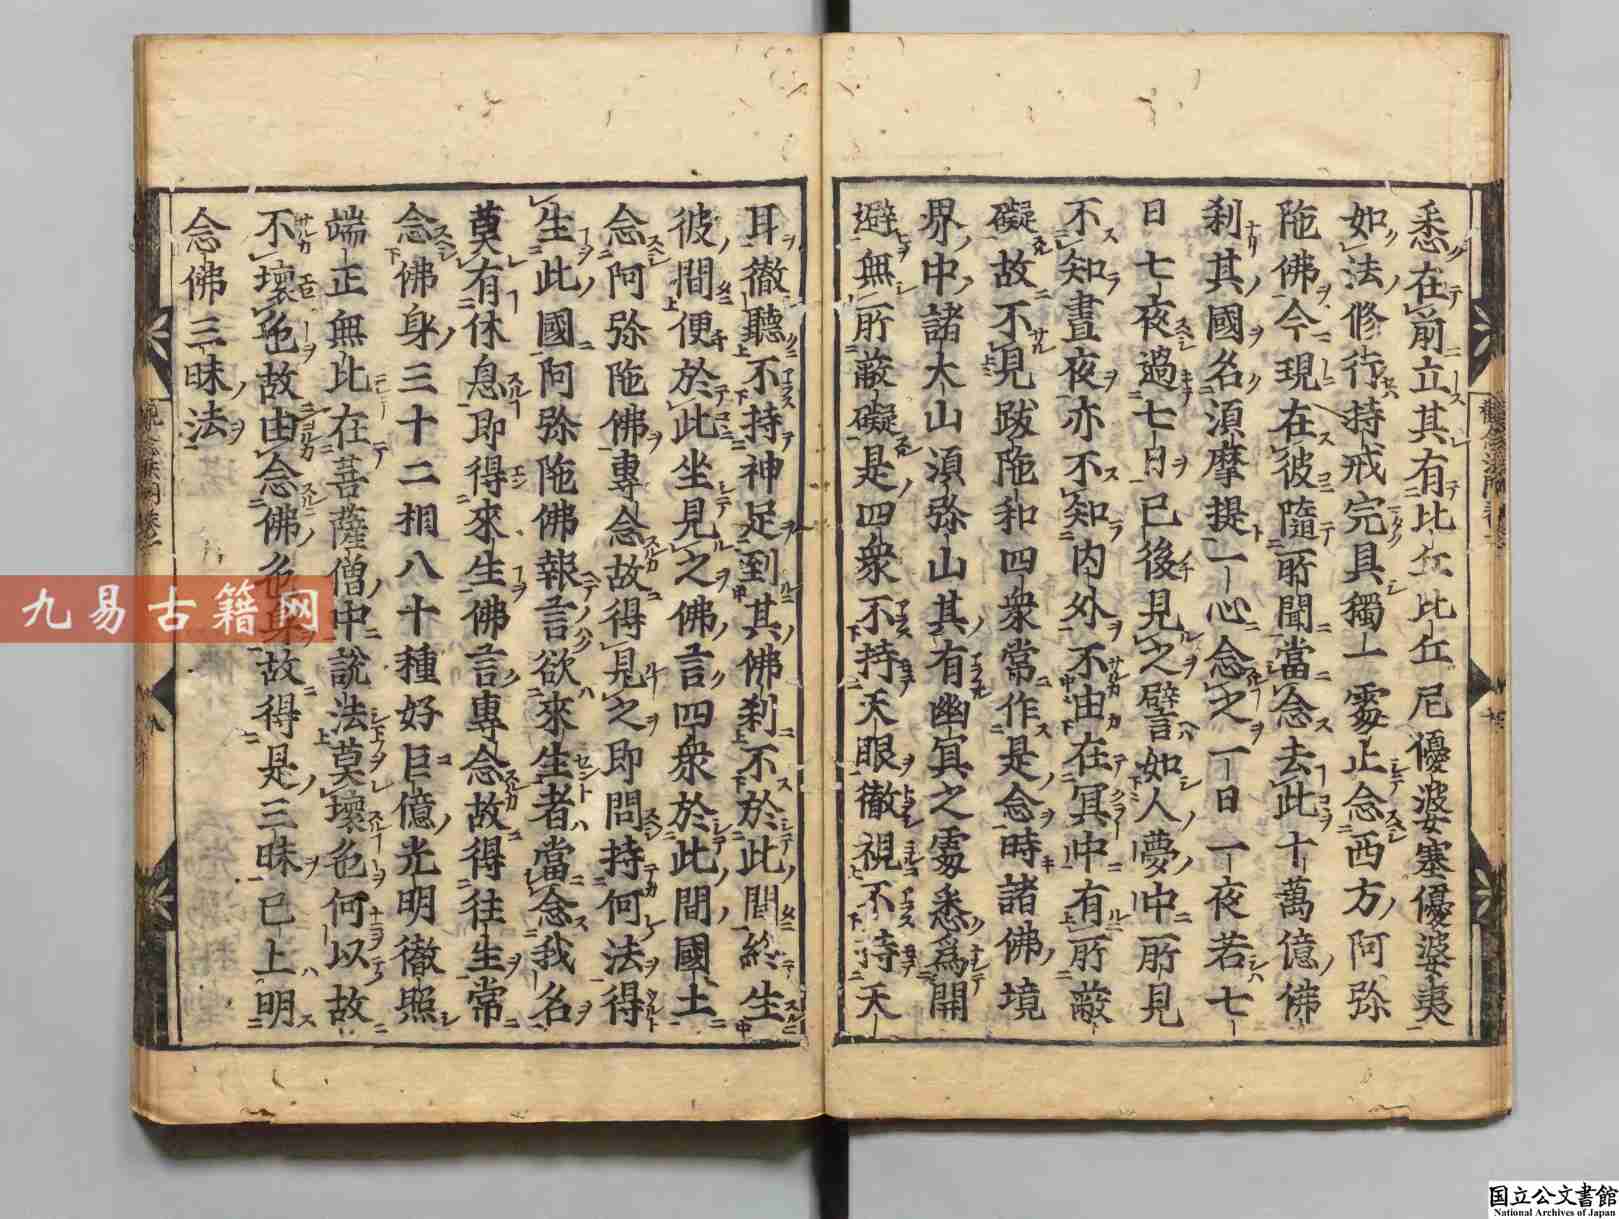 悉在前立其有比丘比丘尼優婆塞優婆夷
如法修行持戒完具獨一處止念西方阿弥
陁佛今現在彼隨所聞當念去此十萬億佛
刹其國名湏摩提一心念之一日一夜若七
日七夜過七日已後見之譬如人夢中所見
不知晝夜亦不知內外不由在冥中有所蔽
礙故不見跋陁和四衆常作是念時諸佛境
界中諸大山湏弥山其有幽冥之處悉為開
避無所蔽礙是四衆不持天眼徹視不持天
耳徹聽不持神足到其佛刹不於此間終生
彼間便於此坐見之佛言四衆於此間國土
念阿弥陁佛專念故得見之即問持何法得
生此國阿弥陁佛報言欲來生者當念我名
莫有休息即得來生佛言專念故得往生常
念佛身三十二相八十種好巨億光明徹照
端正無比在菩薩僧中說法莫壞色何以故
不壞色故由念佛色身故得是三昧已上明
念佛三昧法
九易古籍网
国立公文書館
National Archives of Japan